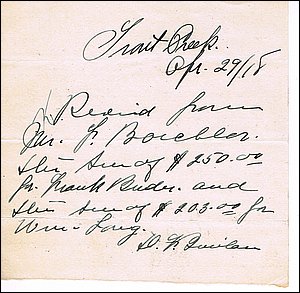 Trout Creek.
Apr. 29/18
Recivd from
Mr. F. Boechler.
the sum of $250.00
fr. Frank Bader. and
the sum of $203.00 for
Wm. Long.
D. F.